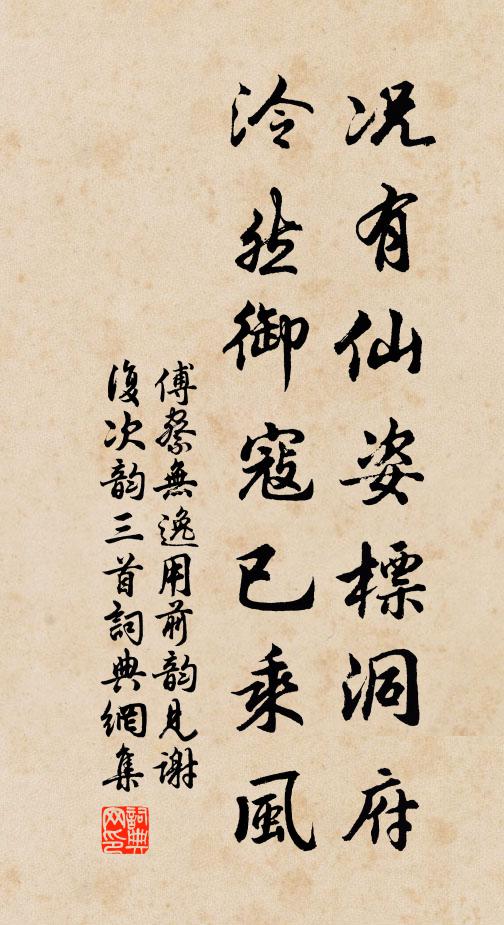 况有仙姿標洞府
泠然御寇已乘風
傅察無逸用前韵見謝
復次韵三首詞典網集
詞典网印